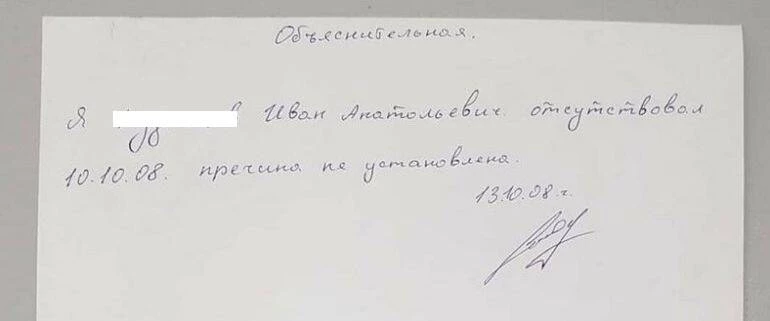 Объяснительная.
Я Иван Анатольевич отсутствовал
10.10.08. пречина не установлена.
13.10.08 г.